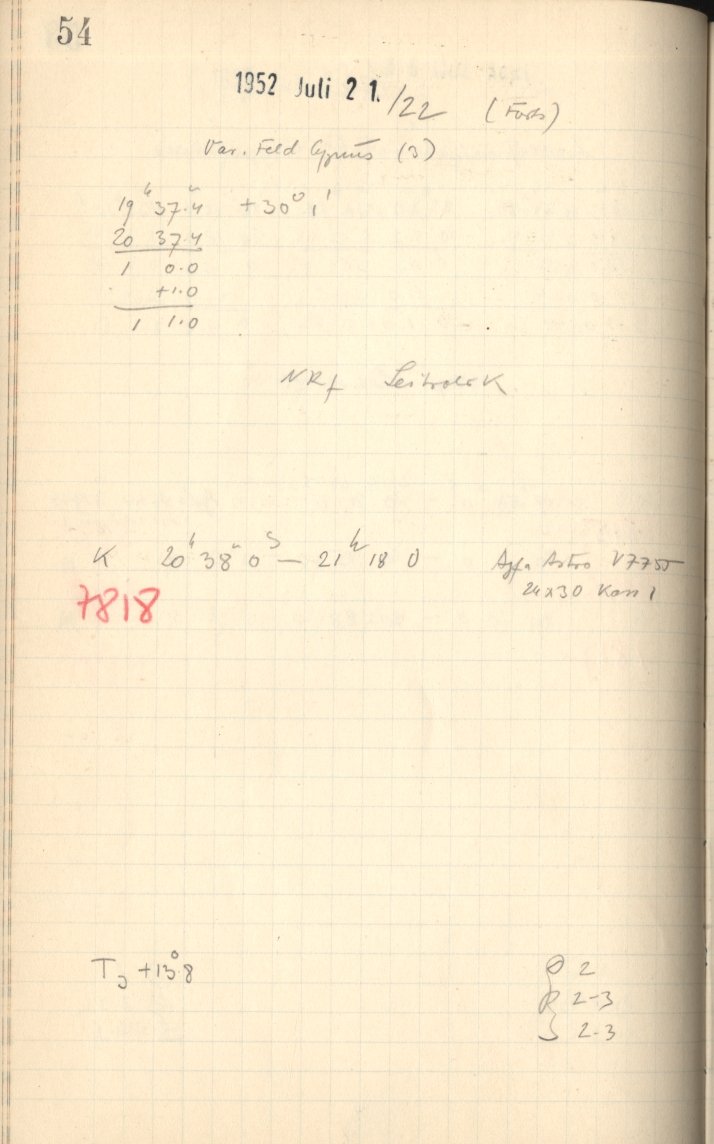 54
1952 Juli 21./22 (Forts)
Var. Feld Cygnus (3)
19ʰ 37ᵐ.4 +30° 1'
20 37.4
1 0.0
+1.0
1 1.0
NRf Leitrohr K
K 20ʰ 38ᵐ 0ˢ — 21ʰ 18 0 Agfa Astro V7755
24x30 Kass 1
7818
T₃ +13°.8
2
2-3
S 2-3